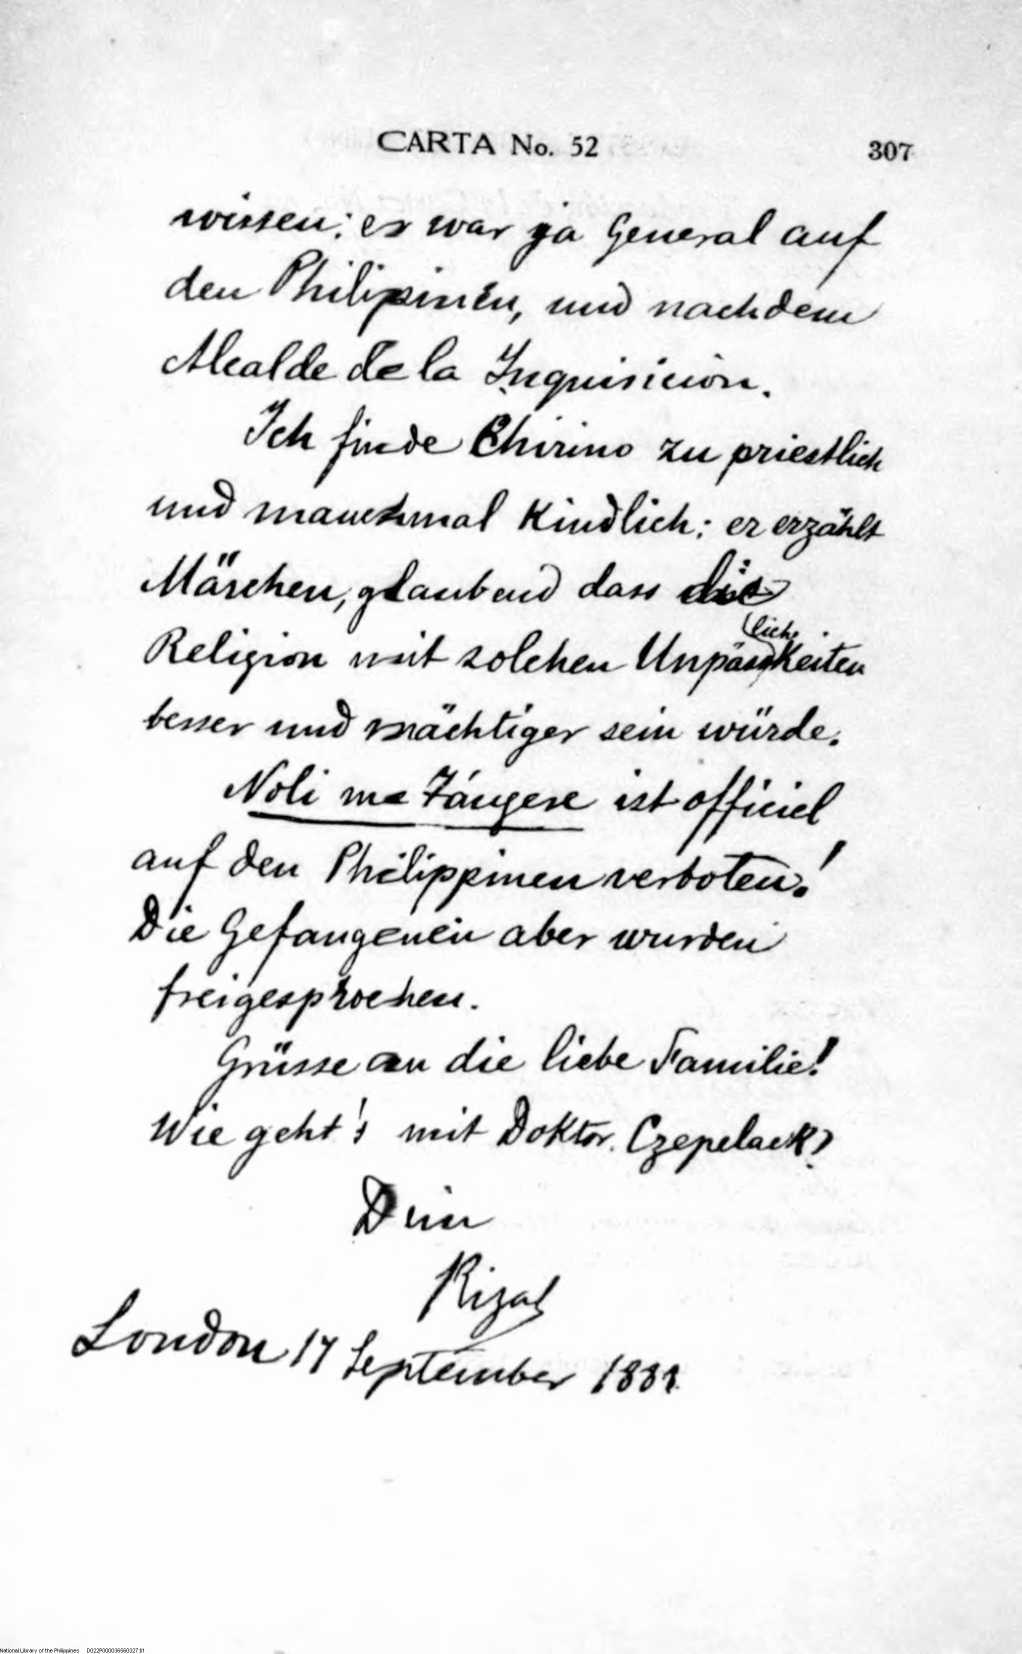 CARTA No. 52 307
wissen: es war ja General auf
den Philipinen, und nachdem
Alcalde de la Inquisicion.
Ich finde Chirino zu priestlich
und manchmal kindlich: er erzählt
Märchen, glaubend dass die
Religion mit solchen Unpässlichkeiten
besser und mächtiger sein würde.
Noli me Tángere ist officiel
auf den Philippinen verboten!
Die Gefangenen aber wurden
freigesprochen.
Grüsse an die liebe Familie!
Wie geht's mit Doktor. Czepelack?
Dein
Rizal
London 17 September 1888
National Library of the Philippines